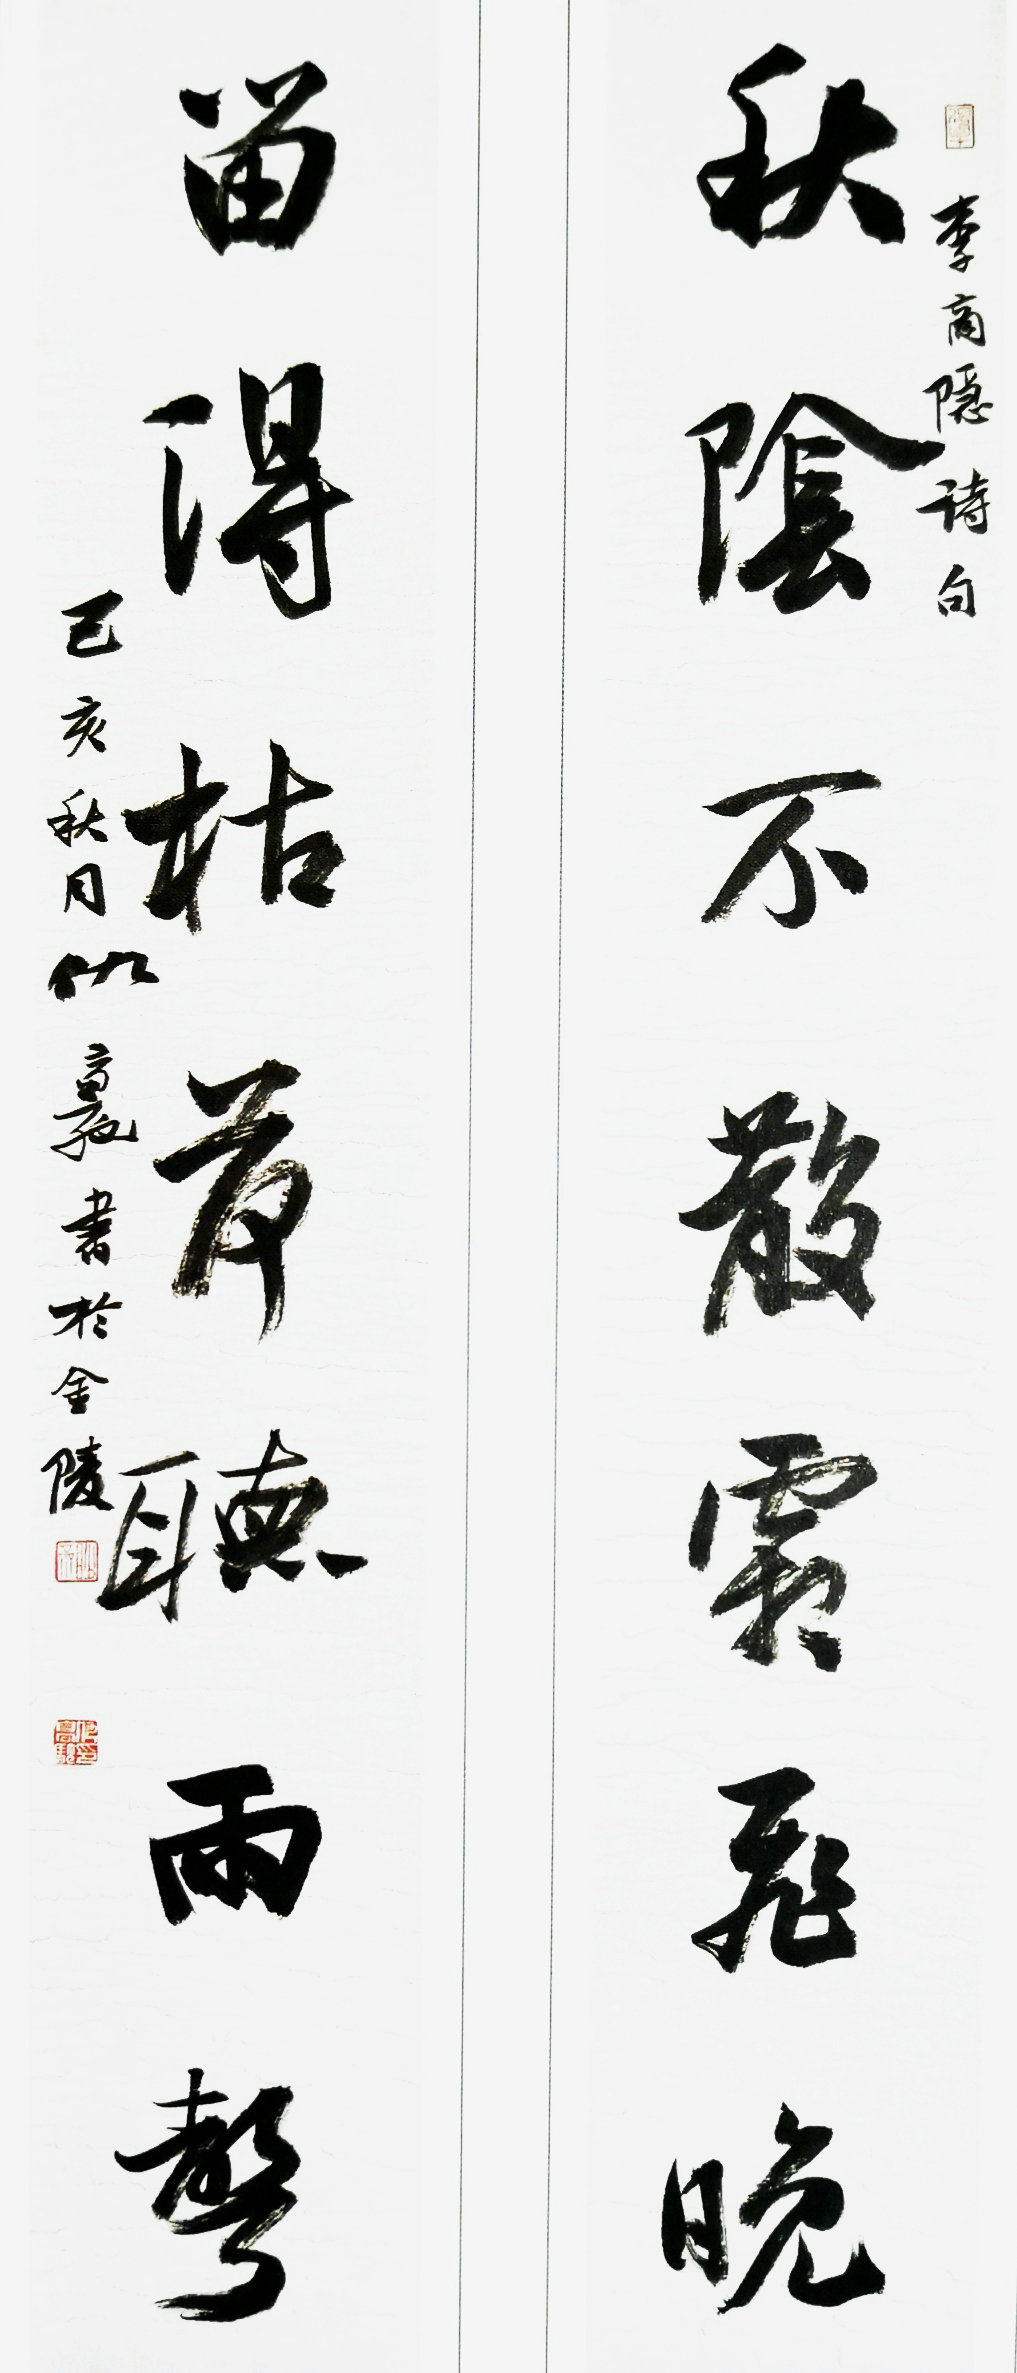 李商隐诗句
秋陰不散霜飛晚
留得枯荷聽雨聲
己亥秋月仇高驰書於金陵